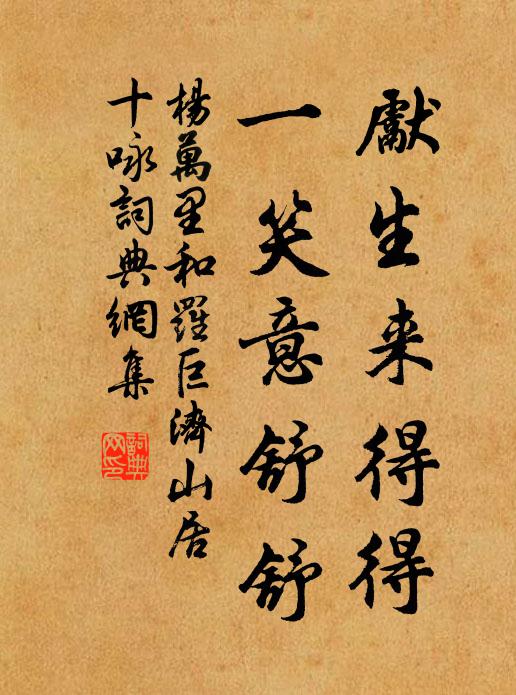 獻生来得得
一笑意舒舒
楊萬里和羅巨濟山居
十咏詞典網集
詞典
网印